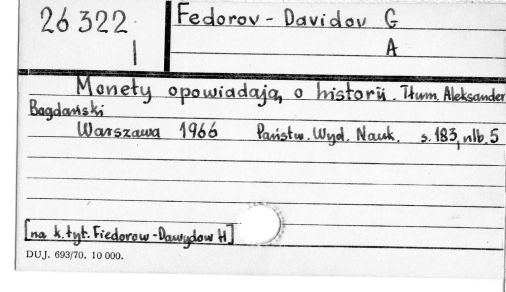 26 322
I
Fedorov - Davidov G
A
Monety opowiadają o historii. Tłum. Aleksander
Bogdański
Warszawa 1966 Państw. Wyd. Nauk. s. 183, nlb. 5
[na k. tyt. Fiedorow-Dawydow H]
DUJ. 693/70. 10 000.